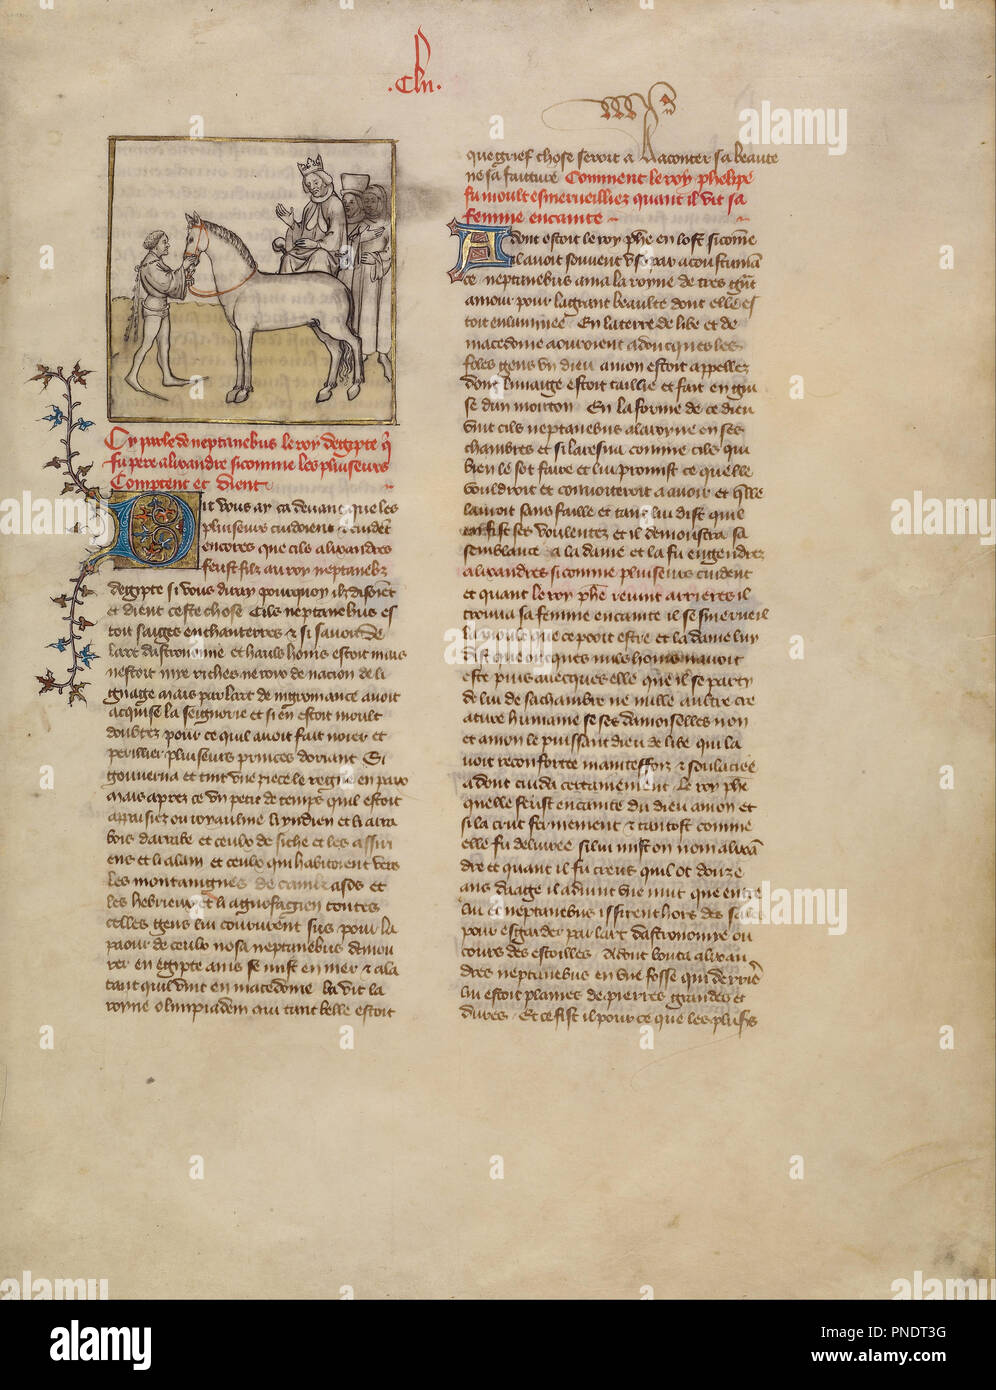 .clvi.
Cy parle de neptanebus le roy degipte q̄
fu pere alixandre si comme les pluiseurs
Comptent et dient
Dit vous ay ca devant que les
pluiseurs cuidoient & cuidēt
encores que cils alixandres
feust filz au roy neptanebz
degipte si vous diray pourquoy ilz disoiēt
et dient ceste chose Cils neptanebus es
toit saiges enchanterres & si savoit de
lart dastronomie et hauls homs estoit mais
nestoit mye riches ne roy de nacion de li
gnage mais par lart de nigromance avoit
acquise la seignorie et si en estoit moult
doubtez pour ce quil avoit fait noier et
perillier pluiseurs princes dorient Si
gouverna et tint une piece le regne en paix
mais aprez ce un petit de temps quil estoit
appaisiez ou royaulme li yndien et li arra
bois darrabe et ceulx de siche et les assiri
ens et li alain et ceulx qui habitoient vers
les montaignes de et
les hebrieux et li toutes
celles gens lui coururent sus pour la
paour de ceulx nosa neptanebus demou
rer en egipte ains se mist en mer & ala
tant quil vint en macedome la vit la
royne olimpiadem qui tant belle estoit
que grief chose seroit a Raconter sa beaute
ne sa faitture Comment le roy phelipe
fu moult esmerveilliez quant il vit sa
femme encainte
Adont estoit le roy phē en lost si comē
il avoit souvent us par acoustumā
ce neptanebus ama la royne de tres gūt
amour pour la grant beaulte dont elle es
toit enluminee En la terre de libe et de
macedome aouroient adoncques les
foles gens un dieu amon estoit appellez
dont lymaige estoit taillie et fait en gui
se dun mouton En la forme de ce dieu
vint cils neptanebus a la royne en ses
chambres et si laresna comme cils qui
bien le sot faire et lui promist ce quelle
vouldroit et convoiteroit a avoir et q̄lle
lauroit sans faille et tant lui dist quil
en fist ses voulentez et il demoustra sa
semblance a la dame et la fu engendrez
alixandres si comme pluiseurs cuident
et quant le roy phē revint arrieres il
trouva sa femme encainte il se smerueil
la moult que ce pooit estre et la dame luy
dist que oncques nuls homs navoit
este puis avecques elle que il se party
de lui de sa chambre ne nulle autre cre
ature humaine se ses damoiselles non
et amon le puissant dieu de libe qui la
voit reconfortee maintesfoiz & soulaciee
adont cuida certainement le roy phē
quelle feust encainte du dieu amon et
si la crut fermement & tantost comme
elle fu delivree si lui mist on nom alixā
dre et quant il fu creus quil ot douze
ans daage il advint une nuit que entre
lui et neptanebus issirent hors des sales
pour esgarder par lart dastronomie ou
cours des estoilles Adont bouta alixan
dres neptanebus en une fosse qui derriēr
lui estoit plaines de pierres grandes et
dures Et ce fist il pour ce que les plusrs
alamy
Image ID: PNDT3G
www.alamy.com